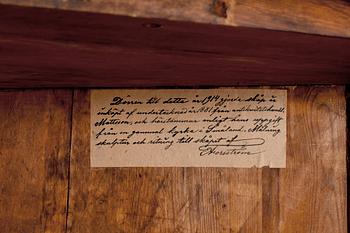 Dörren till detta år 1914 gjorda skåp är
inköpt af undertecknad år 1881 från antikvitetshandl.
Mattsson, och härstammar enligt hans uppgift
från en gammal kyrka i Småland. Målning
skulptur och ritning till skåpet af